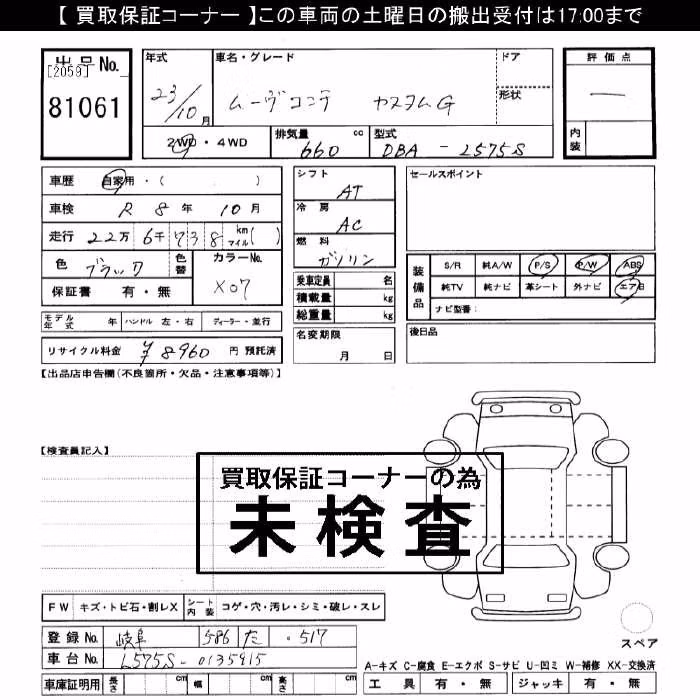 【 買取保証コーナー 】この車両の土曜日の搬出受付は17:00まで
出品No.
[2059]
81061
年式
23/10月
車名・グレード
ムーヴコンテ カスタムG
ドア
形状
評価点
―
内装
2WD・4WD
排気量 cc
660
型式
DBA-L575S
車歴 自家用・( )
車検 R 8年 10月
走行 22万 6千 738 km マイル( )
色 ブラック
色替
カラーNo.
X07
保証書 有・無
シフト
AT
冷房
AC
燃料
ガソリン
乗車定員 名
積載量 kg
総重量 kg
セールスポイント
装備品
S/R 純A/W P/S P/W ABS
純TV 純ナビ 革シート 外ナビ エアB
ナビ型番:
モデル年式 年 ハンドル 左・右 ディーラー・並行
リサイクル料金 ¥8960 円 預託済
名変期限
月 日
後日品
【出品店申告欄(不良箇所・欠品・注意事項等)】
【検査員記入】
買取保証コーナーの為
未検査
FW キズ・トビ石・割レX シート内装 コゲ・穴・汚レ・シミ・破レ・スレ
登録No. 岐阜 586 た ・517
車台No. L575S-0135915
スペア
A-キズ C-腐食 E-エクボ S-サビ U-凹ミ W-補修 XX-交換済
車庫証明用 長さ cm 幅 cm 高さ cm
工具 有・無 ジャッキ 有・無